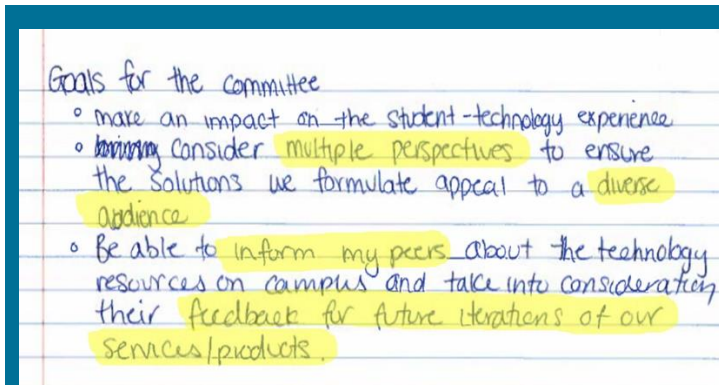 Goals for the committee
• make an impact on the student-technology experience
• Consider multiple perspectives to ensure
the solutions we formulate appeal to a diverse
audience
• Be able to inform my peers about the technology
resources on campus and take into consideration
their feedback for future iterations of our
services/products.